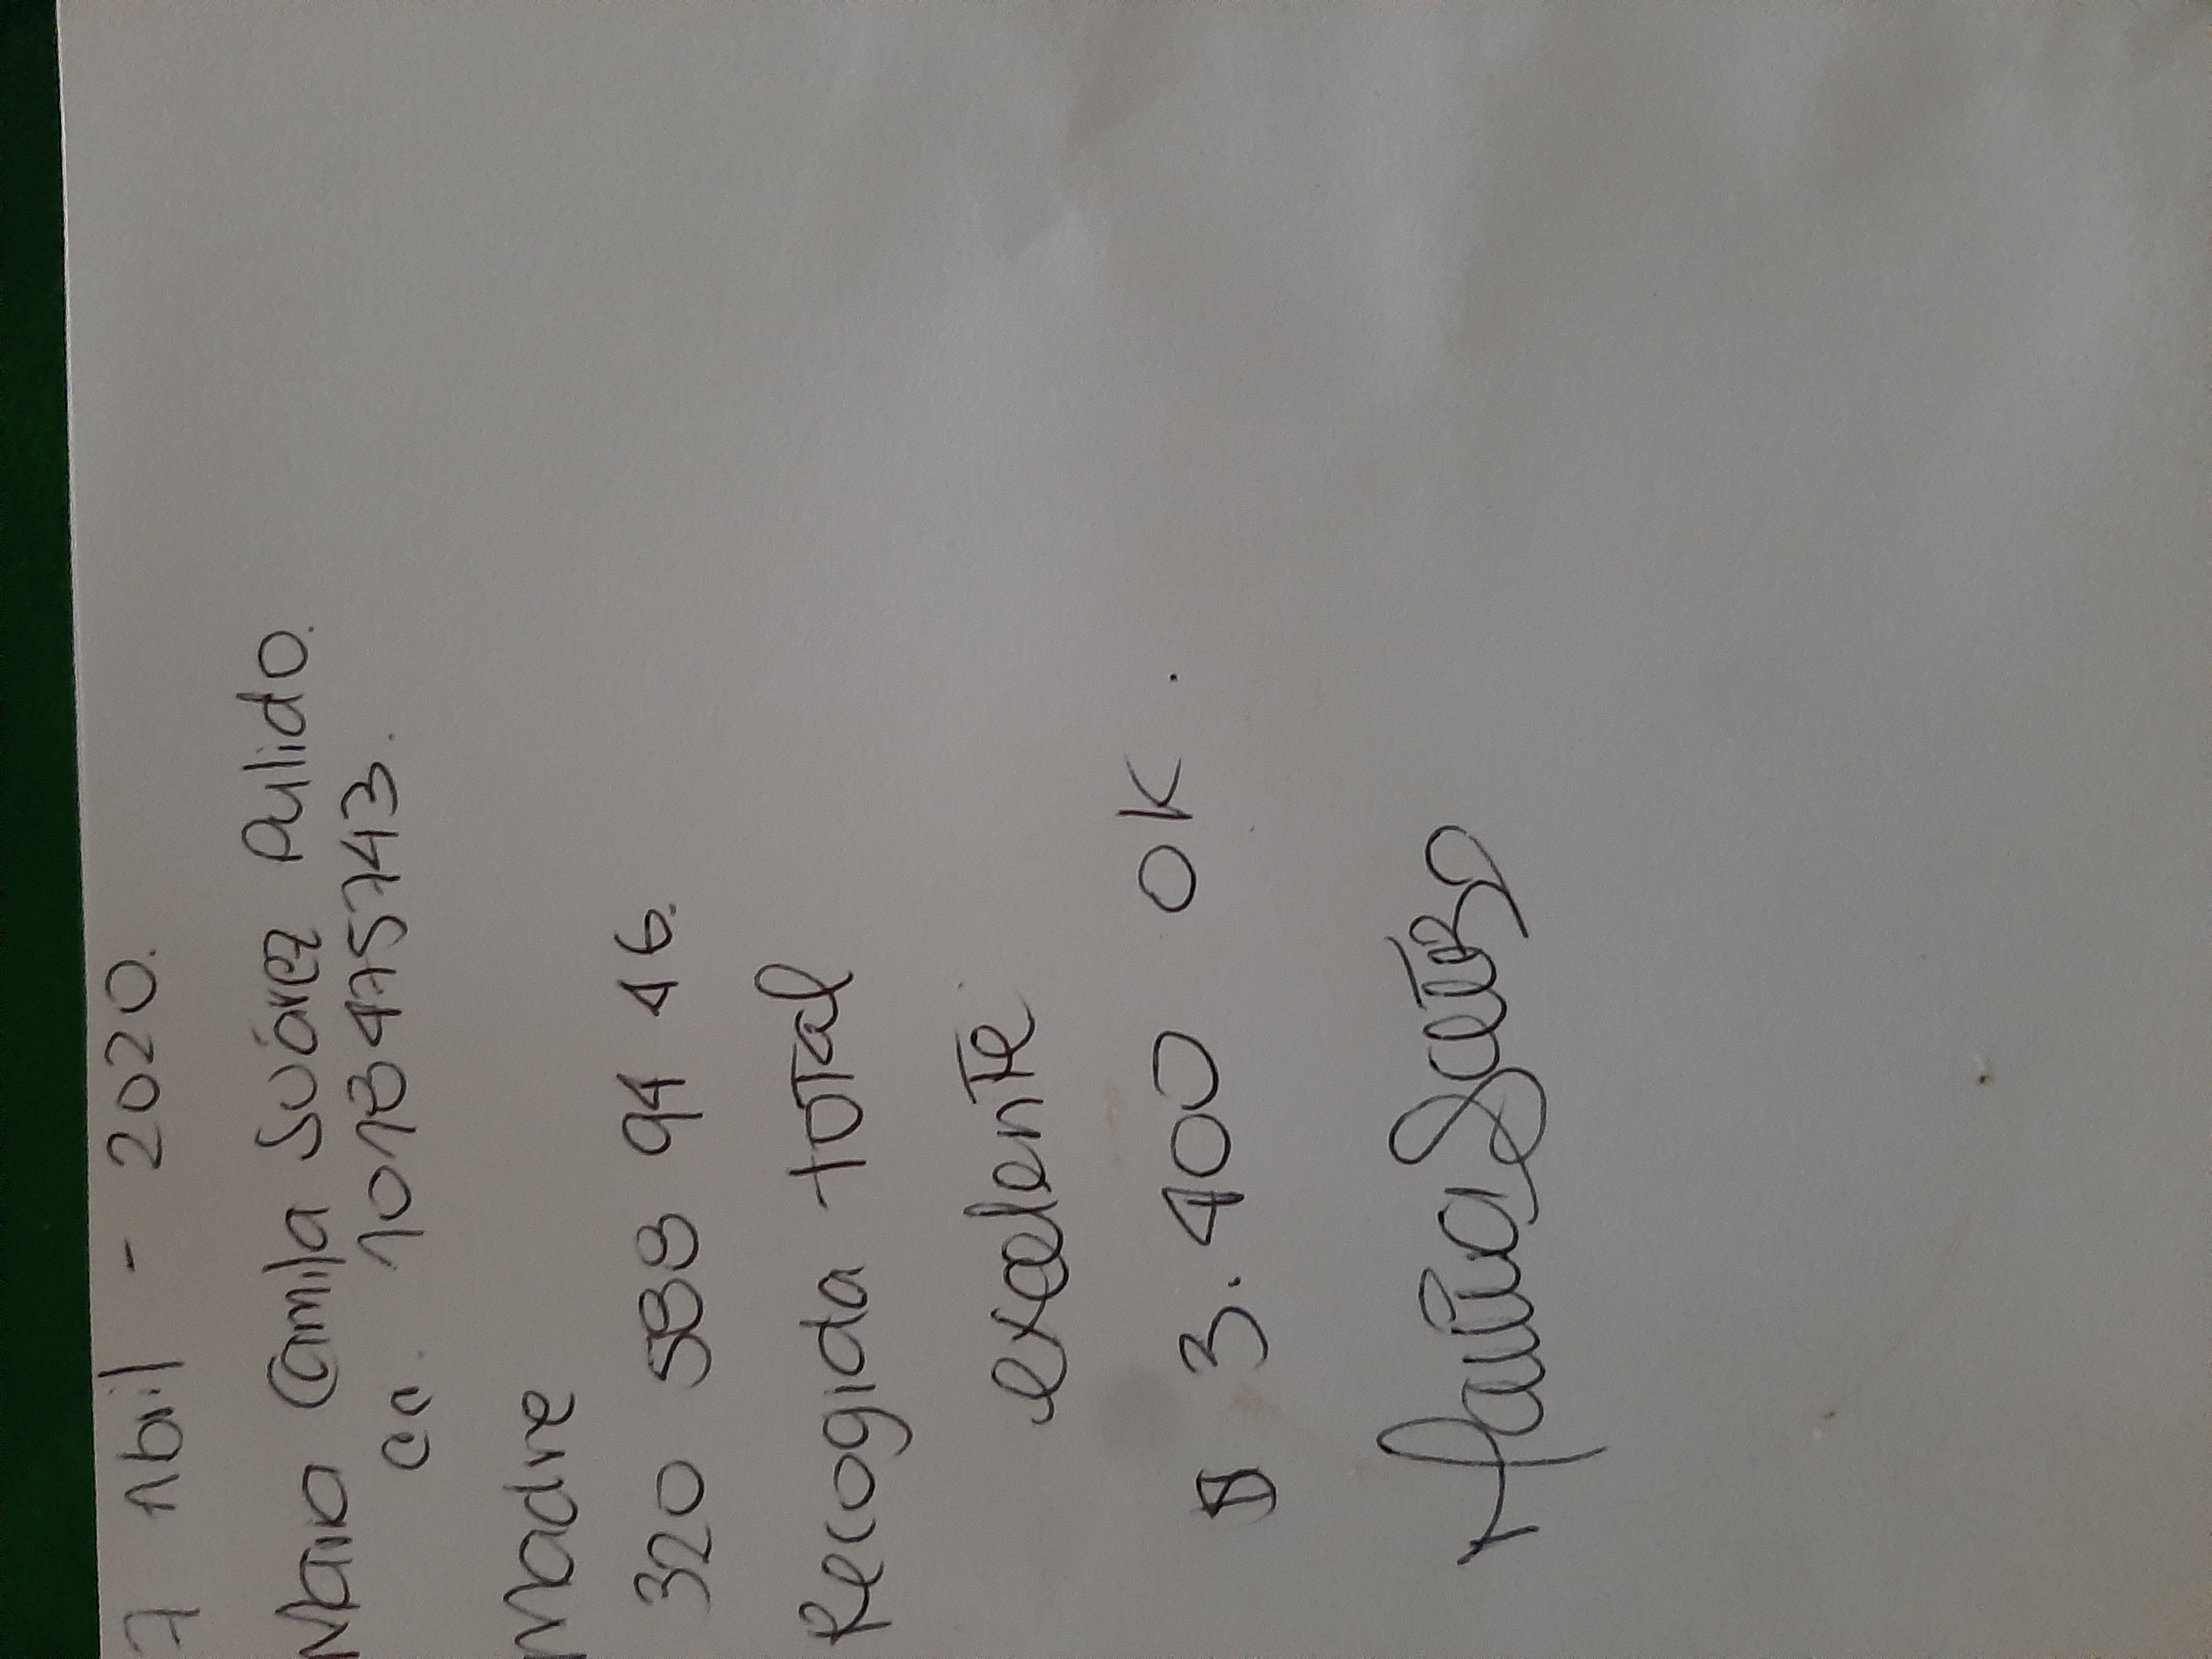 7 Abril - 2020.
Maria Camila Suárez Pulido.
cc. 1018475743.
Madre
320 588 94 46.
Recogida total
exelente
$ 3.400 ok.